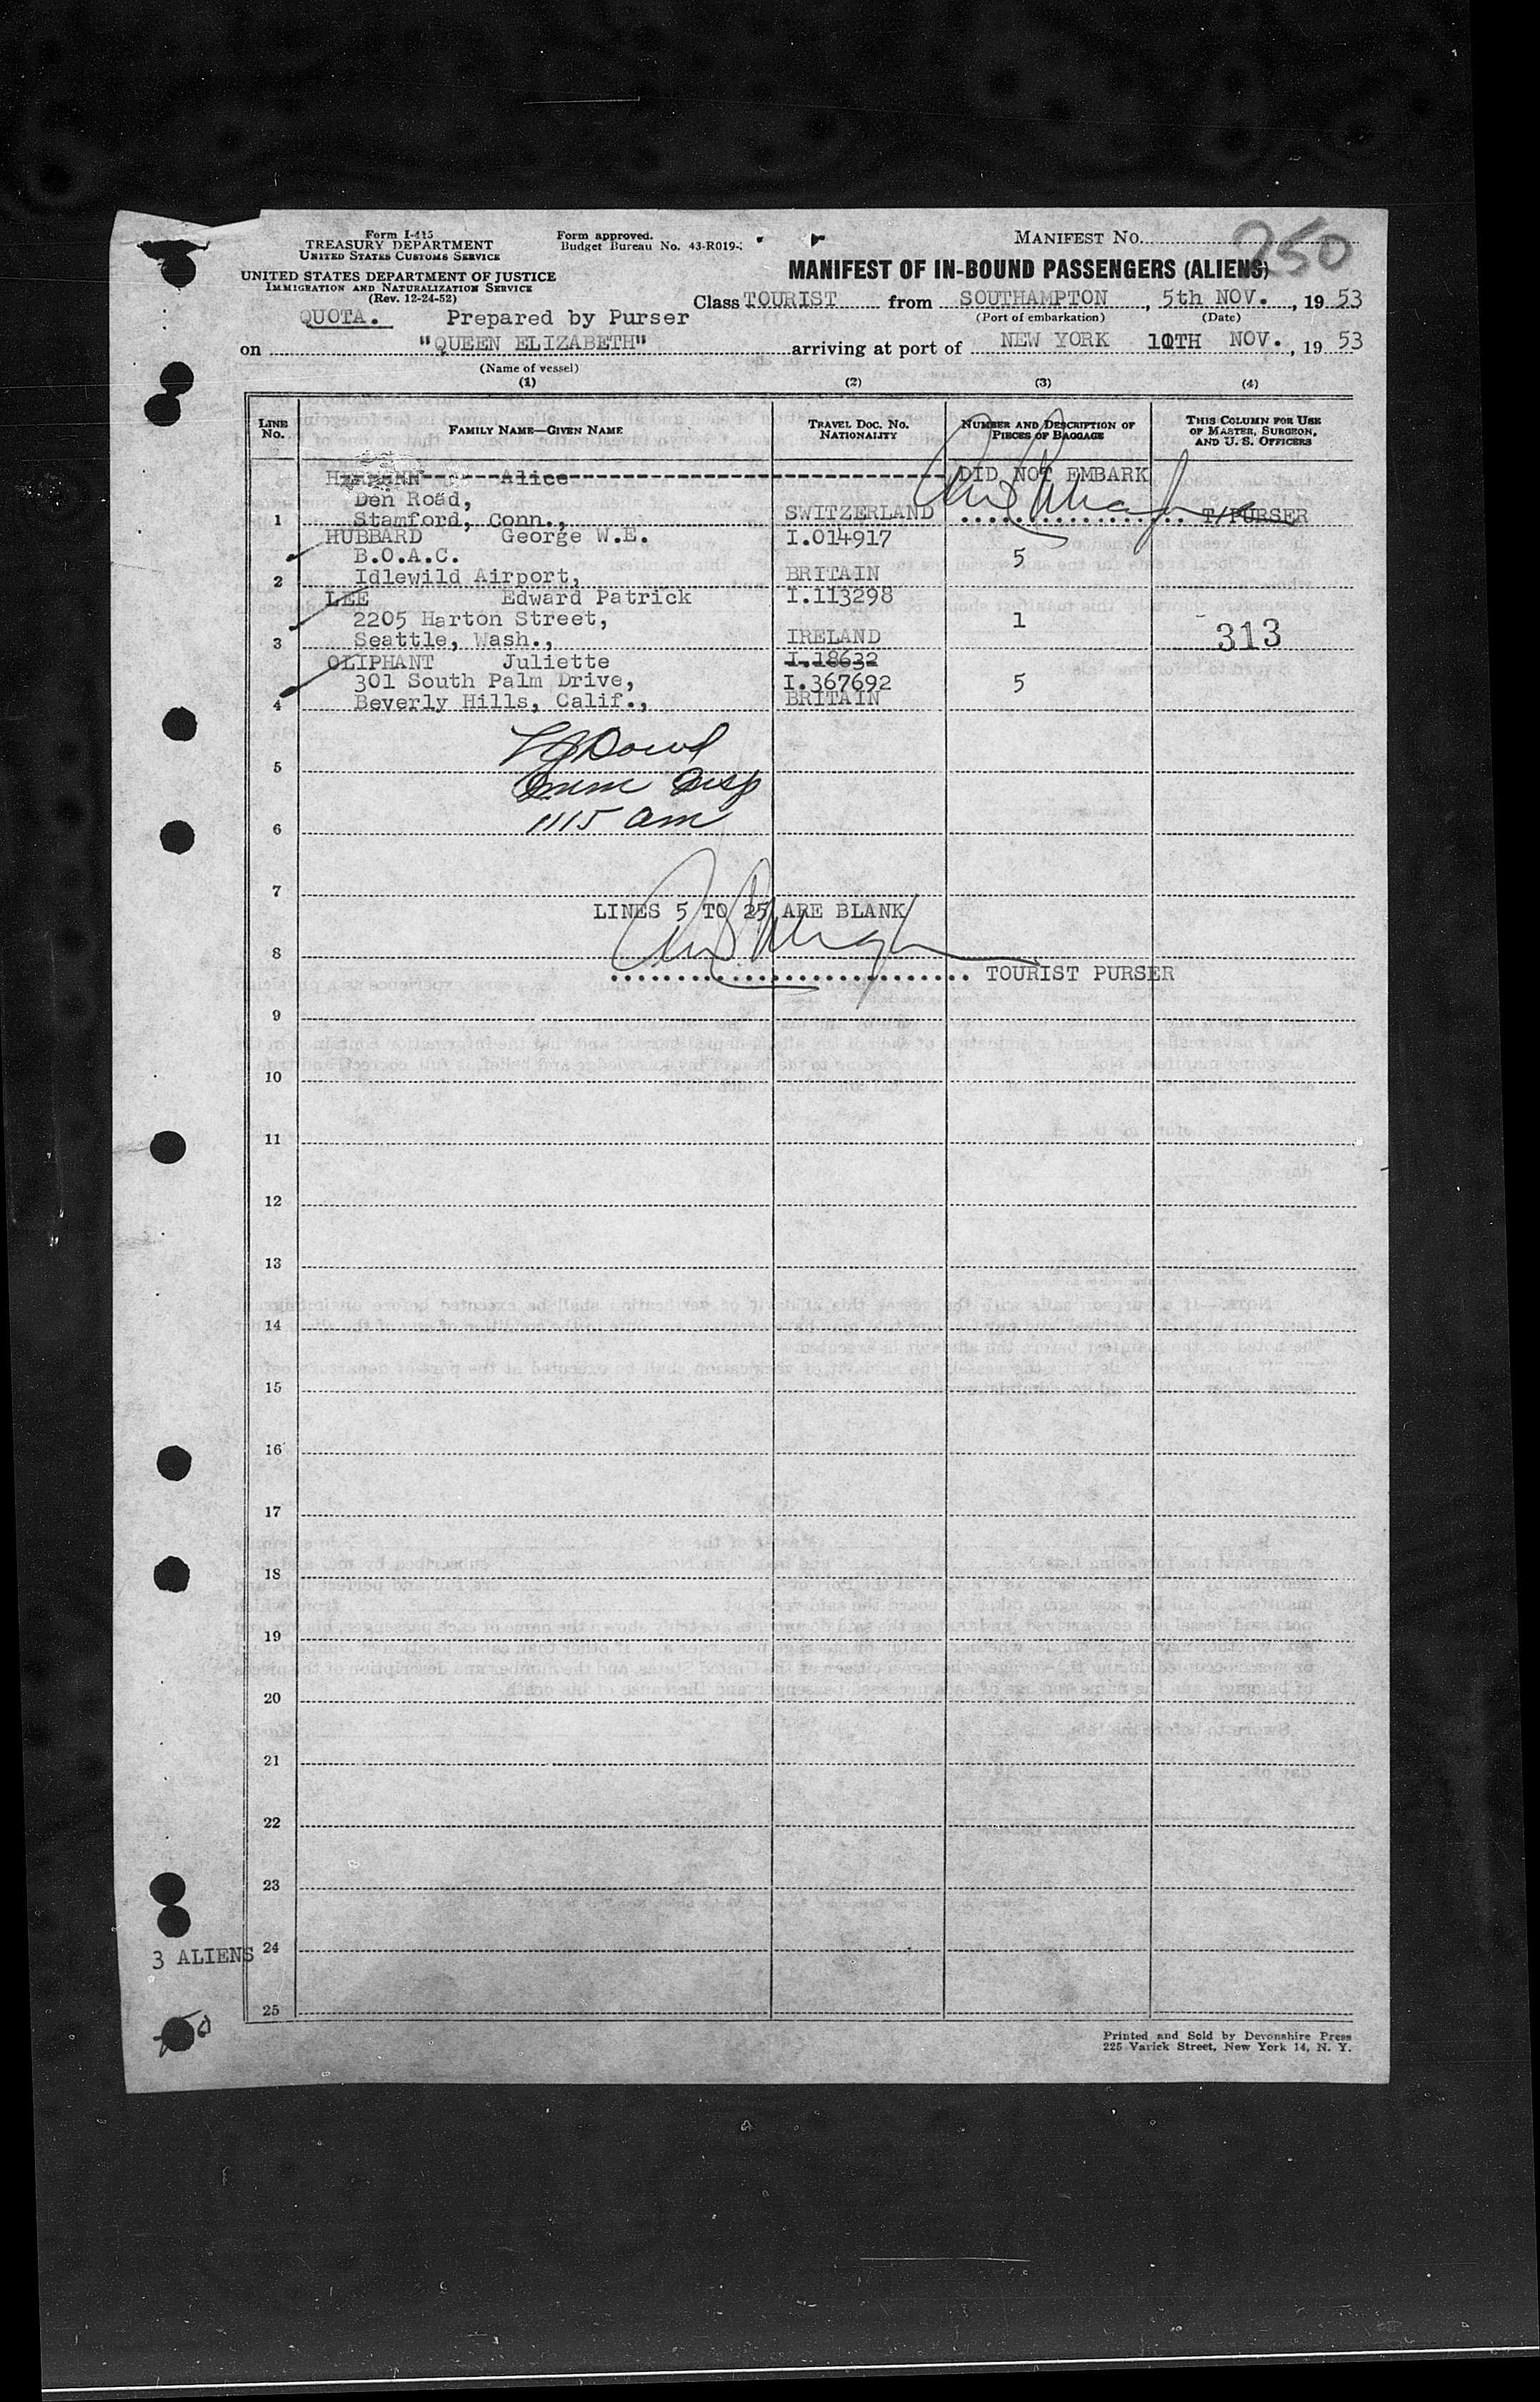 Form I-415
TREASURY DEPARTMENT
UNITED STATES CUSTOMS SERVICE
UNITED STATES DEPARTMENT OF JUSTICE
IMMIGRATION AND NATURALIZATION SERVICE
(Rev. 12-24-52)
Form approved.
Budget Bureau No. 43-R019-
MANIFEST NO. 250
MANIFEST OF IN-BOUND PASSENGERS (ALIENS)
Class TOURIST from SOUTHAMPTON, 5th NOV., 19 53
(Port of embarkation) (Date)
QUOTA. Prepared by Purser
on "QUEEN ELIZABETH" arriving at port of NEW YORK NOV., 19 53
(Name of vessel)
(1) (2) (3) (4)
LINE No. FAMILY NAME—GIVEN NAME TRAVEL DOC. NO. NATIONALITY NUMBER AND DESCRIPTION OF PIECES OF BAGGAGE THIS COLUMN FOR USE OF MASTER, SURGEON, AND U. S. OFFICERS
Alice DID NOT EMBARK
Den Road,
1 Stamford, Conn., SWITZERLAND T/PURSER
HUBBARD George W.E. I.014917
B.O.A.C. 5
2 Idlewild Airport, BRITAIN
LEE Edward Patrick I.113298
2205 Harton Street, 1
3 Seattle, Wash., IRELAND 313
OLIPHANT Juliette I.18632
301 South Palm Drive, I.367692 5
4 Beverly Hills, Calif., BRITAIN
5
Imm Insp
1115 am
6
7
LINES 5 TO 25 ARE BLANK
8
TOURIST PURSER
9
10
11
12
13
14
15
16
17
18
19
20
21
22
23
3 ALIENS 24
25
Printed and Sold by Devonshire Press
225 Varick Street, New York 14, N. Y.